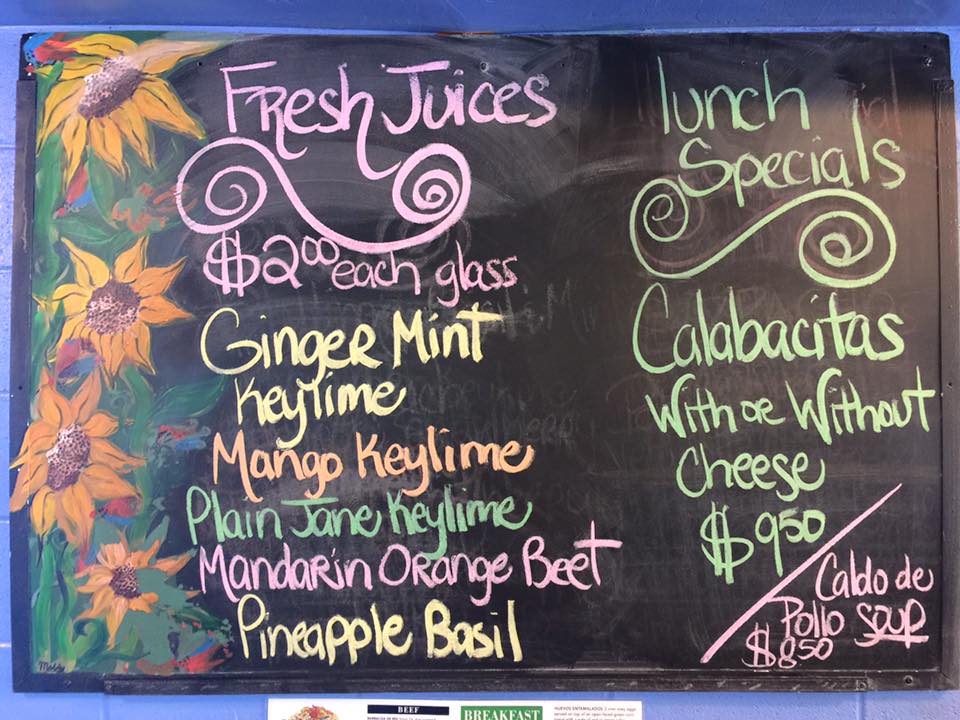 Fresh Juices
$2.00 each glass
Ginger Mint
Keylime
Mango Keylime
Plain Jane Keylime
Mandarin Orange Beet
Pineapple Basil
lunch
Specials
Calabacitas
With or Without
Cheese
$9.50
Caldo de
Pollo Soup
$8.50
BEEF
BREAKFAST
HUEVOS ENTAMALADOS